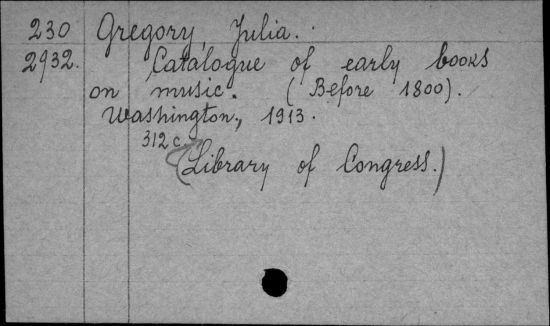 230 Gregory, Julia.
2932. Catalogue of early books
on music. (Before 1800).
Washington, 1913.
312 c.
(Library of Congress.)